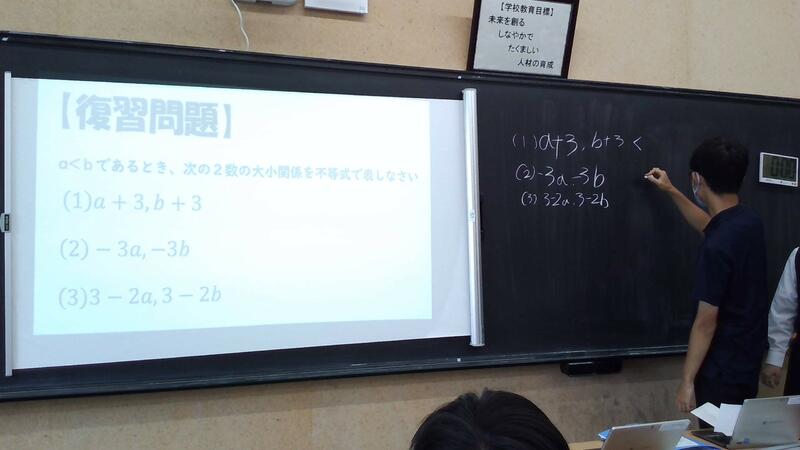 【学校教育目標】
未来を創る
しなやかで
たくましい
人材の育成
【復習問題】
a<bであるとき、次の2数の大小関係を不等式で表しなさい
(1)a+3,b+3
(2)−3a,−3b
(3)3−2a,3−2b
(1)a+3,b+3 <
(2)-3a -3b
(3) 3-2a, 3-2b